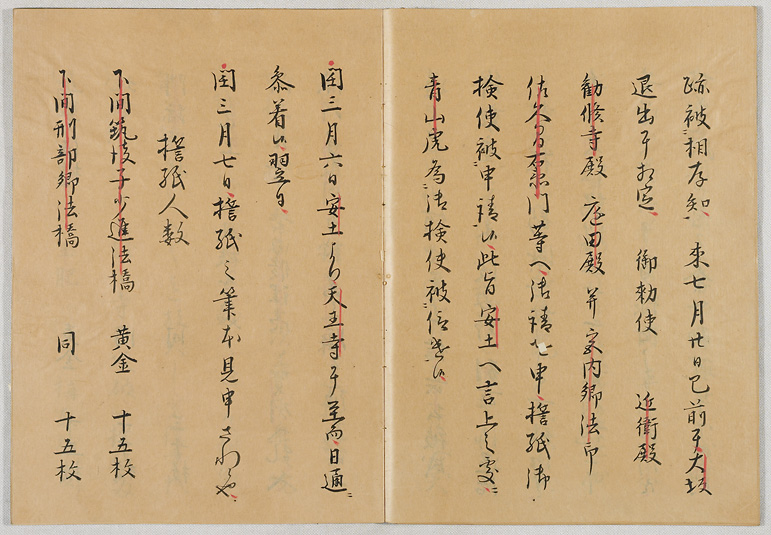 跡被相存知、来七月廿日已前于大坂
退出于相定、御勅使 近衛殿
勧修寺殿 庭田殿 并宮内卿法印
佐久間右衛門等へ御請を申、誓紙御
検使被申請候、此旨安土へ言上之処、
青山虎為御検使被仰遣候、
閏三月六日安土より天王寺于至而、日通
参着候、翌日、
閏三月七日、誓紙之筆本見申され也、
誓紙人数
下間筑後子少進法橋 黄金 十五枚
下間刑部卿法橋 同 十五枚